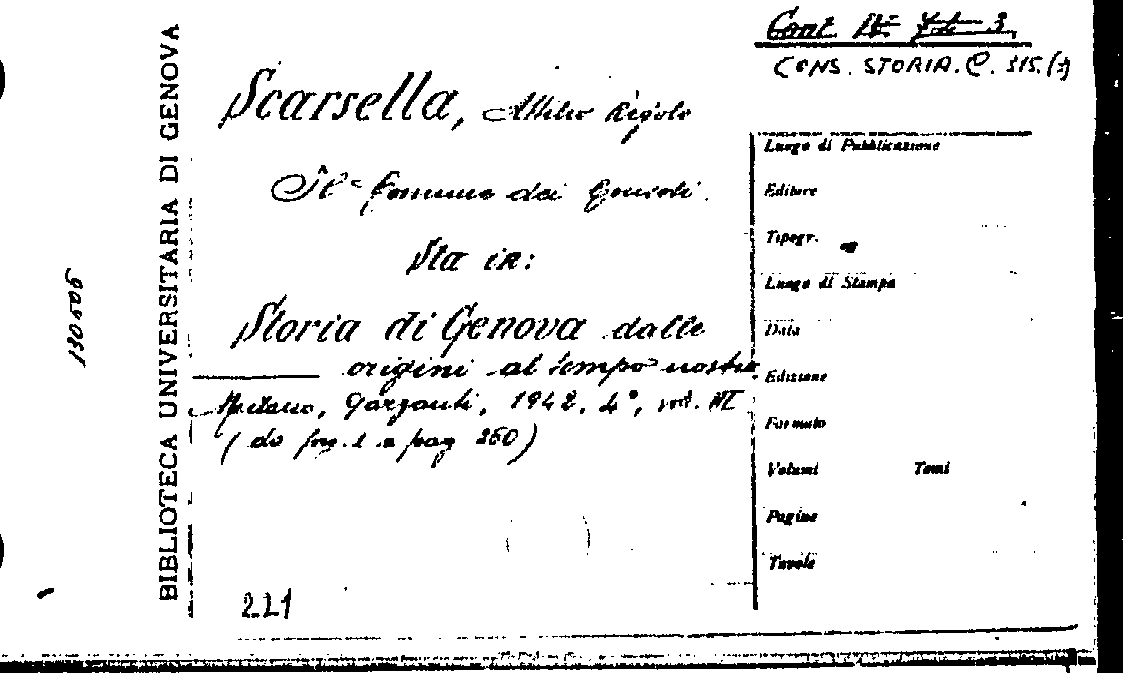 Cont. IV 7.4. 3.
CONS. STORIA. C. 315.(3)
BIBLIOTECA UNIVERSITARIA DI GENOVA
Scarsella, Attilio Regolo
Il Comune dei Consoli.
Sta in:
Storia di Genova dalle
origini al tempo nostro
Milano, Garzanti, 1942, 4°, vol. III
(da pag. 1 a pag 260)
Luogo di Pubblicazione
Editore
Tipogr.
Luogo di Stampa
Data
Edizione
Formato
Volumi Tomi
Pagine
Tavole
221